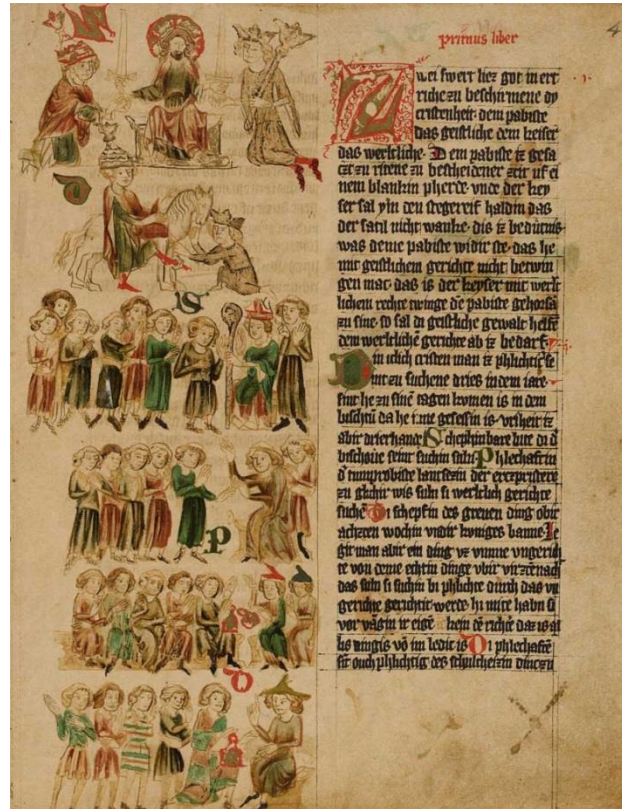 primus liber
4
Zwei swert liez got in ert
riche zu beschirmene dy
cristenheit dem pabiste
das geistliche dem keiser
das werltliche Dem pabiste iz gesa
czt zu ritene zu bescheidener zcit uf ei
nem blankin pherde vnde der key
ser sal ym den stegereif haldin das
der satil nicht wanke dis iz bedutnis
was deme pabiste widir ste das he
mit geistlichem gerichte nicht betwin
gen mac das is der keyser mit werlt
lichem rechte twinge dē pabiste gehorsā
zu sine so sal di geistliche gewalt helfē
dem werltlichē gerichte ab iz bedarf
in iclich cristen man iz phlichtic se
nt zu suchene dries in dem iare
sint he zu sinē tagen komen is in dem
bischtū da he inne gesessin is vriheit iz
abir drier hande Schephinbare lute di d
bischove seint suchin suln Phlechaftin
d tumprobiste lantsezin der erczpristere
zu glichir wis suln si werltlich gerichte
suchē Di schepfin des greuen ding obir
achzen wochin vndir koniges banne Le
git man abir ein ding vz vmme vngerich
te von deme echtin dinge vbir virzēnach
das suln si suchin bi phlichte durch das vn
gerichte gerichtit werde hi mite habn si
vor vāgin ir eigē kein dē richtē daz is al
lis dingis vō im ledic is Di phlechaftē
sīt ouch phlichtig des schulcheizin dinc zu
D
S
P